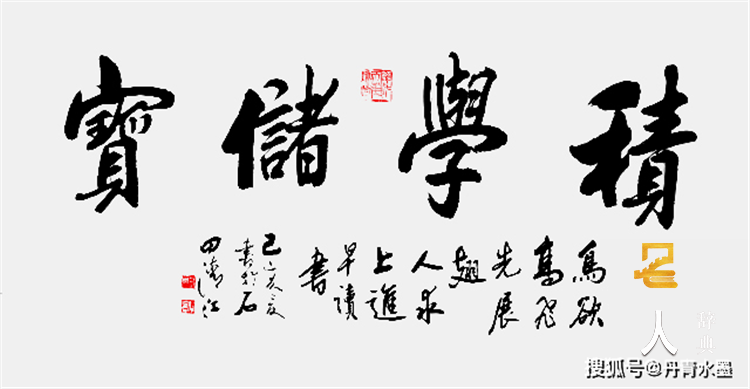 積學儲寶
鳥欲
高飛
先展
翅
人求
上進
早讀
書
己亥夏
書於石
人
辞典
搜狐号@丹青水墨